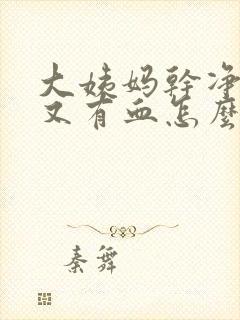 大姨妈幹净
又有血怎麽
秦舞